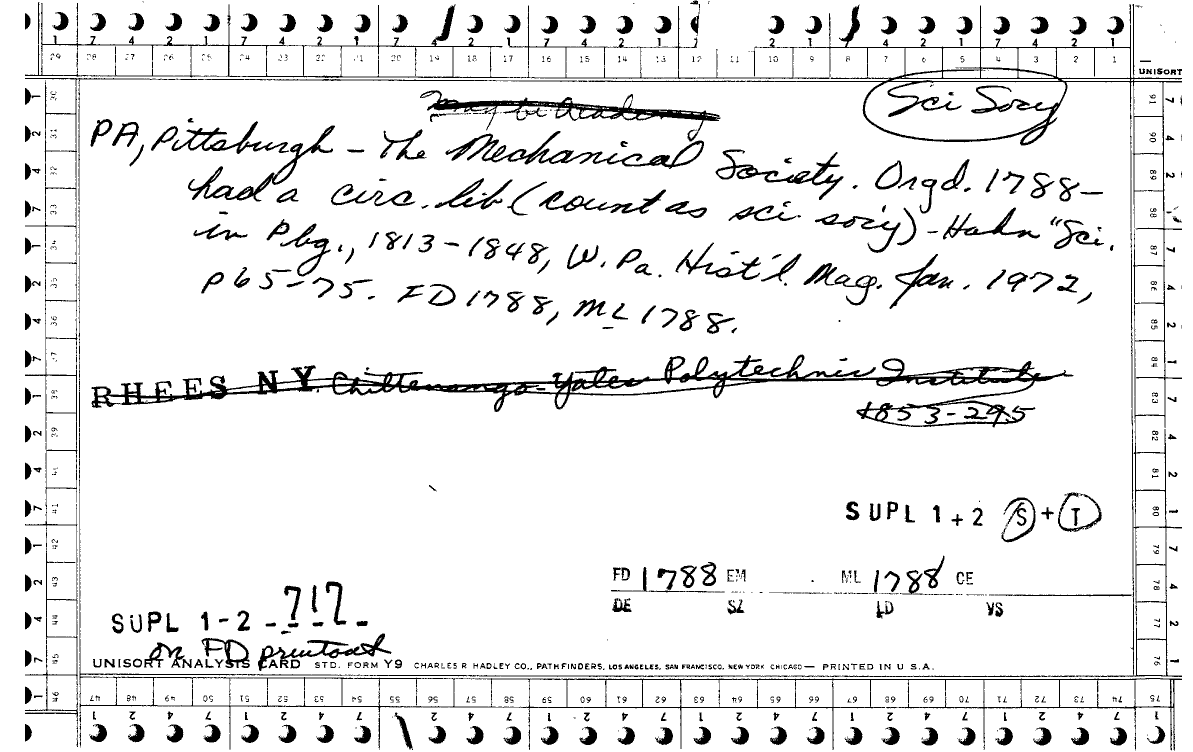 7 4 2 1 7 4 2 1 7 4 2 1 7 4 2 1 2 1 7 4 2 1
29 28 27 26 25 24 23 22 21 20 19 18 17 16 15 14 13 12 11 10 9 8 7 6 5 4 3 2 1
UNISORT
Maybe Academy
Sci Socy
PA, Pittsburgh - The Mechanical Society. Orgd. 1788-
had a circ. lib (count as sci socy) - Hahn "Sci.
in Pbg., 1813-1848, W. Pa. Hist'l. Mag. Jan. 1972,
p65-75. FD 1788, ML 1788.
RHEES NY Chittenango - Yates Polytechnic Institute
1853-295
SUPL 1+2 S + T
FD 1788 EM ML 1788 CE
DE SZ LD VS
SUPL 1-2 - 717 -
on FD printout
UNISORT ANALYSIS CARD STD. FORM Y9 CHARLES R HADLEY CO., PATHFINDERS, LOS ANGELES, SAN FRANCISCO, NEW YORK CHICAGO — PRINTED IN U S A.
47 48 49 50 51 52 53 54 55 56 57 58 59 60 61 62 63 64 65 66 67 68 69 70 71 72 73 74 75